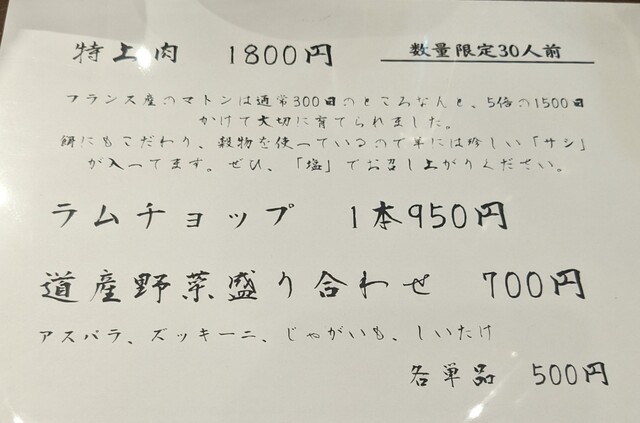 特上肉 1800円 数量限定30人前
フランス産のマトンは通常300日のところなんと、5倍の1500日
かけて大切に育てられました。
餌にもこだわり、穀物を使っているので羊には珍しい「サシ」
が入ってます。ぜひ、「塩」でお召し上がりください。
ラムチョップ 1本950円
道産野菜盛り合わせ 700円
アスパラ、ズッキーニ、じゃがいも、しいたけ
各単品 500円